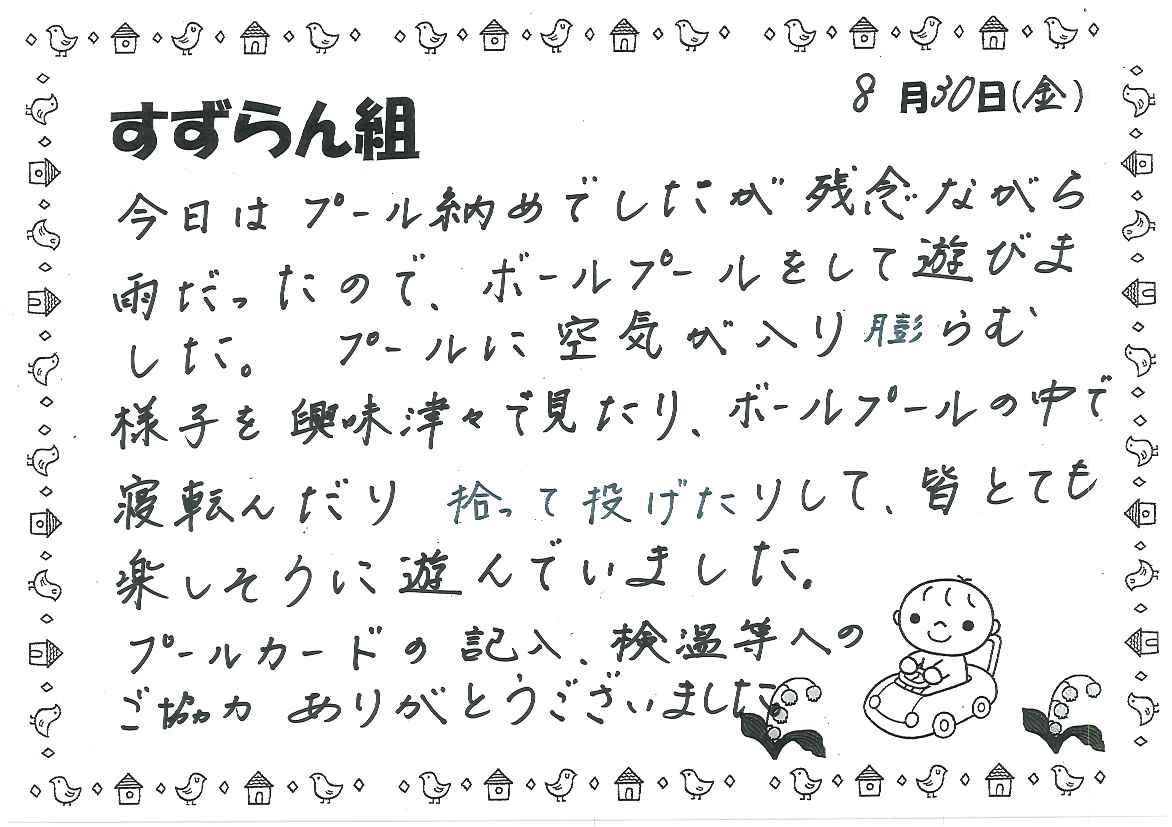 8月30日(金)
すずらん組
今日はプール納めでしたが残念ながら
雨だったので、ボールプールをして遊びま
した。プールに空気が入り膨らむ
様子を興味津々で見たり、ボールプールの中で
寝転んだり拾って投げたりして、皆とても
楽しそうに遊んでいました。
プールカードの記入、検温等への
ご協力ありがとうございました。